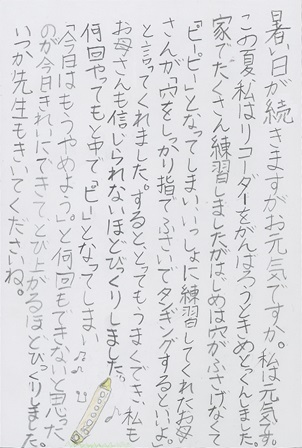 暑い日が続きますがお元気ですか。私は元気です。
この夏、私はリコーダーをがんばろうときめとっくんしました。
家でたくさん練習しましたがはじめは穴がふさげなくて
「ピーピー」となってしまい、いっしょに練習してくれたお母
さんが「穴をしっかり指でふさいでタンギングするといいよ」
と言ってくれました。すると、とってもうまくでき、私も
お母さんも信じられないほどびっくりしました。
何回やっても と中で「ピー」となってしまい
「今日はもうやめよう。」と何回もできないと思った
のが今日きれいにできて、とび上がるほどびっくりしました。
いつか先生もきいてくださいね。